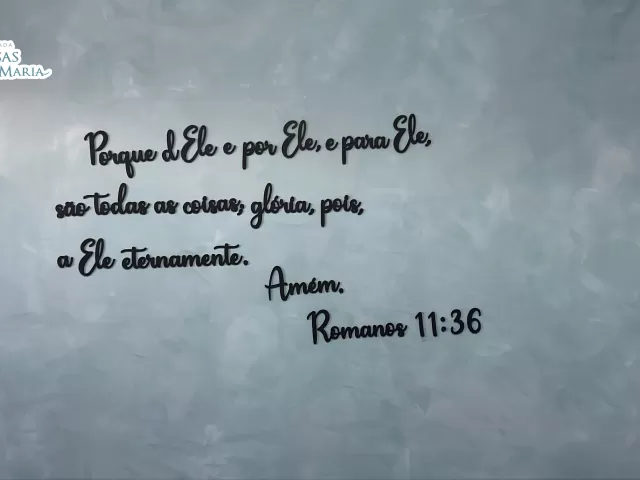 ADA
SAS
MARIA
Porque d Ele e por Ele, e para Ele,
são todas as coisas; glória, pois,
a Ele eternamente.
Amém.
Romanos 11:36